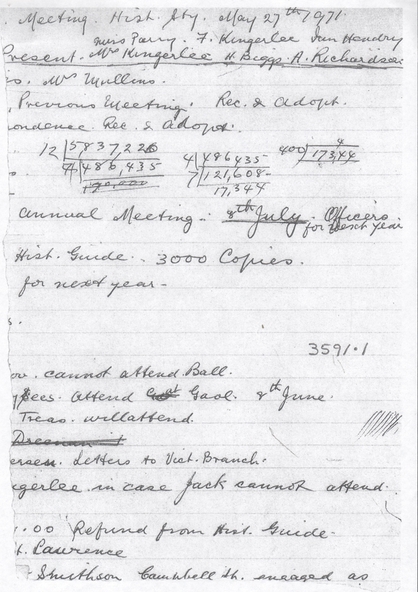 Meeting Hist. Sty. May 27th 1971.
Miss Parry. F. Kingerlee Van Hendry
Present. Mrs Kingerlee H. Biggs. A. Richardson.
Mrs Mullins.
Previous Meeting. Rec. & Adopt.
ondence Rec. & Adopt.
12 5837,220 4 486,435 400 17344
486,435 7 121,608
17,344
Annual Meeting. 8th July. Officers
for next year
Hist. Guide. 3000 Copies.
for next year -
s.
3591.1
ov. cannot attend Ball.
ees. Attend Gaol. 8th June.
Treas. will attend.
Letters to Vict. Branch.
gerlee in case Jack cannot attend.
.00 Refund from Hist. Guide.
t. Lawrence
Smithson Campbell St. engaged as